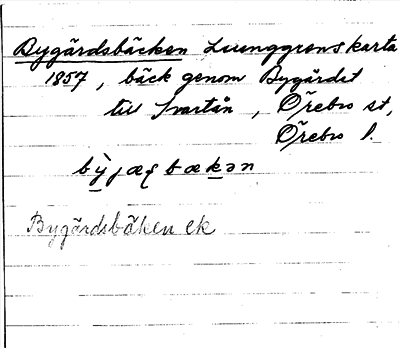 Bygärdsbäcken Ljunggrens karta
1857, bäck genom Bygärdet
till Svartån, Örebro st,
Örebro l.
bỳjæʂbækən
Bygärdsbäcken ek